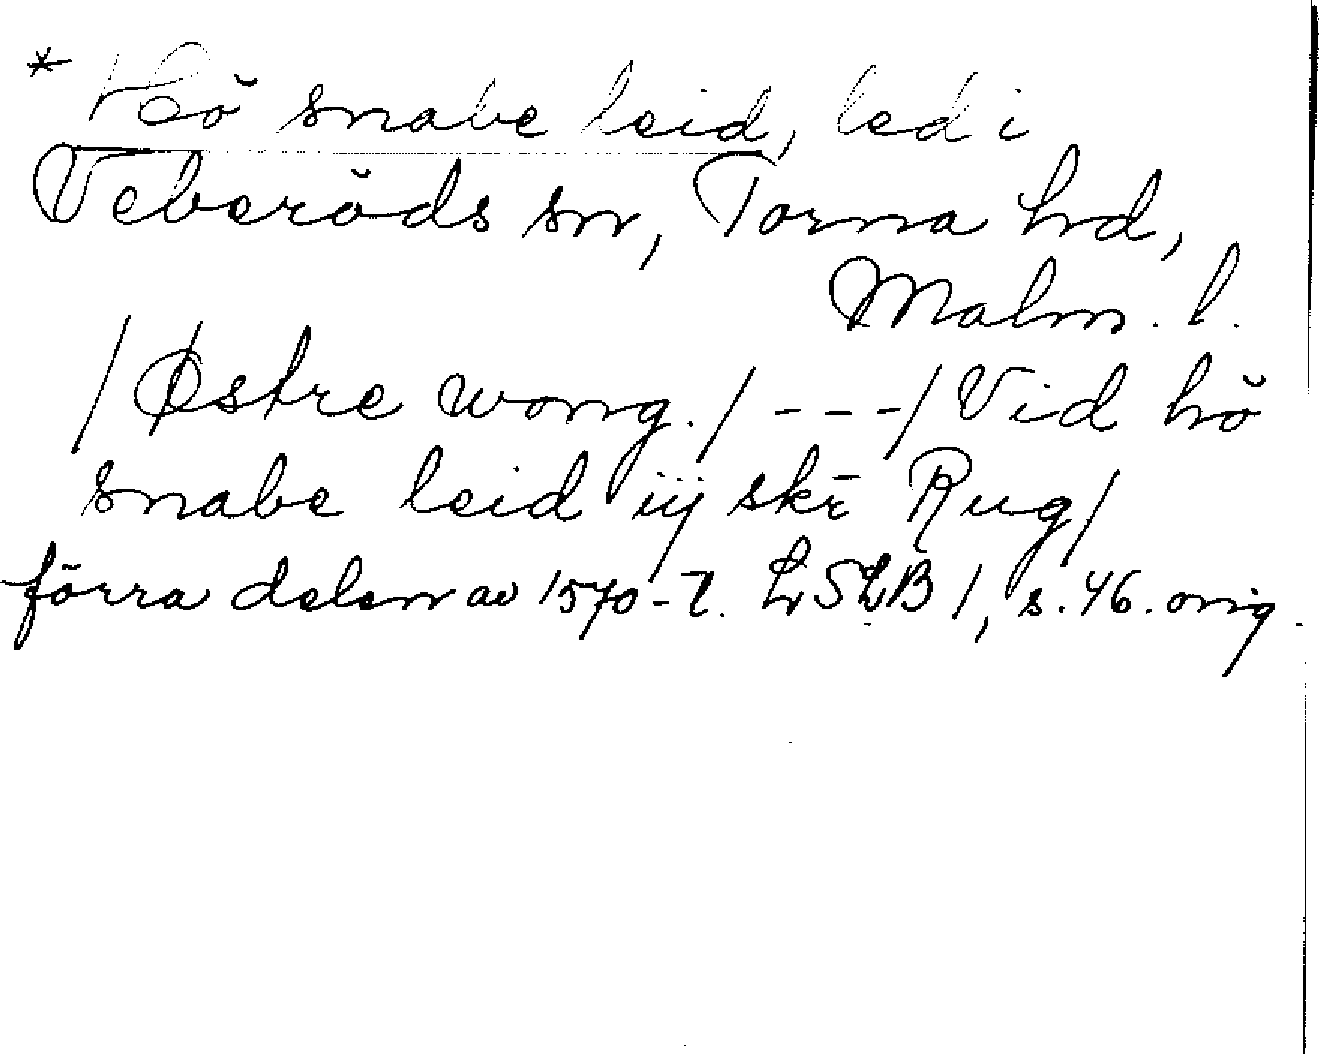 * Hö snabe leid, led i
Veberöds sn, Torna hd,
Malm. l.
/Østre wong./---/Vid hö
snabe leid iij skē Rug/
förra delen av 1570-t. LSLB 1, s. 46. orig.